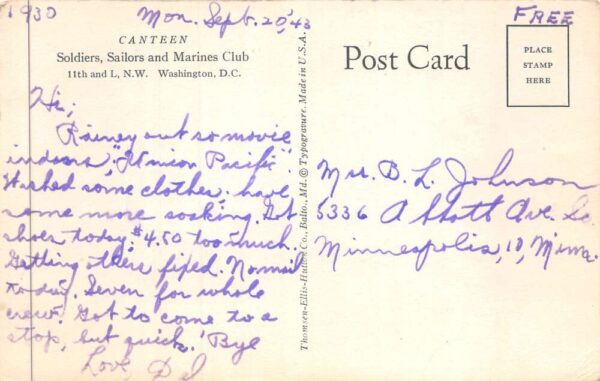 1930
Mon. Sept. 20, '43
FREE
CANTEEN
Soldiers, Sailors and Marines Club
11th and L, N.W. Washington, D.C.
Post Card
PLACE
STAMP
HERE
Hi;
Rainey out so movie
indoors, "Union Pacific".
Washed some clothes. have
some more soaking. Got
shoes today. $4.50 too much.
Getting others fixed. No mail
today. Seven for whole
crew. Got to come to a
stop, but quick. 'Bye
Love, Del
Thomsen-Ellis-Hutton Co., Balto., Md. © Typogravure. Made in U.S.A.
Mrs. B. L. Johnson
5336 Abbott Ave. So
Minneapolis, 10, Minn.